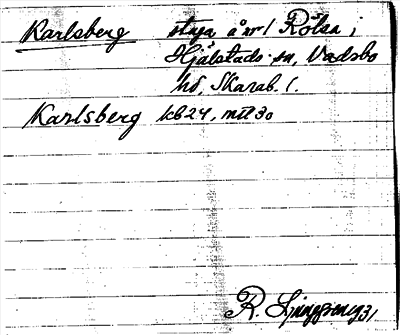 Karlsberg stuga å nr 1 Rölsa,
Hjälstads sn, Vadsbo
hd, Skarab. l.
Karlsberg kb 24, mtl 30
R. Ljunggren 1931